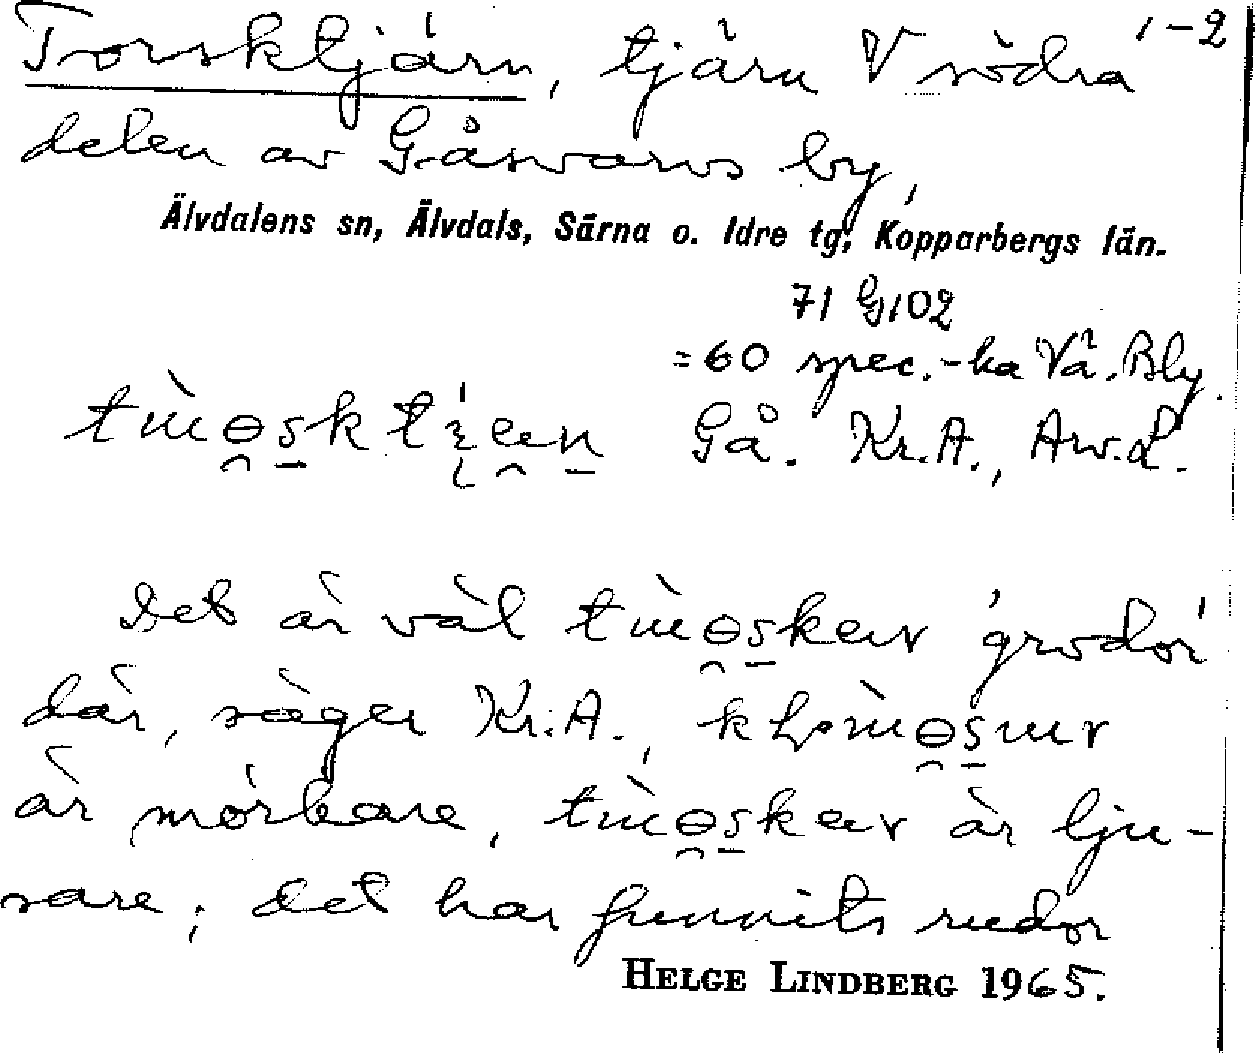 1-2
Torsktjärn, tjärn V södra
delen av Gåsvarvs by,
Älvdalens sn, Älvdals, Särna o. Idre tg, Kopparbergs län.
71 G 102
=60 spec.-ka Vå. Bly.
Gå. Kr.A., Aw.L.
Det är väl 'grodor'
där, säger Kr.A.,
är mörkare, är lju-
sare; det har funnits rudor
HELGE LINDBERG 1965.